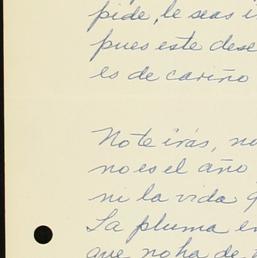 pide, le seas i
pues este dese
es de cariño
No te irás, no
no es el año
ni la vida q
La pluma en
que no ha de